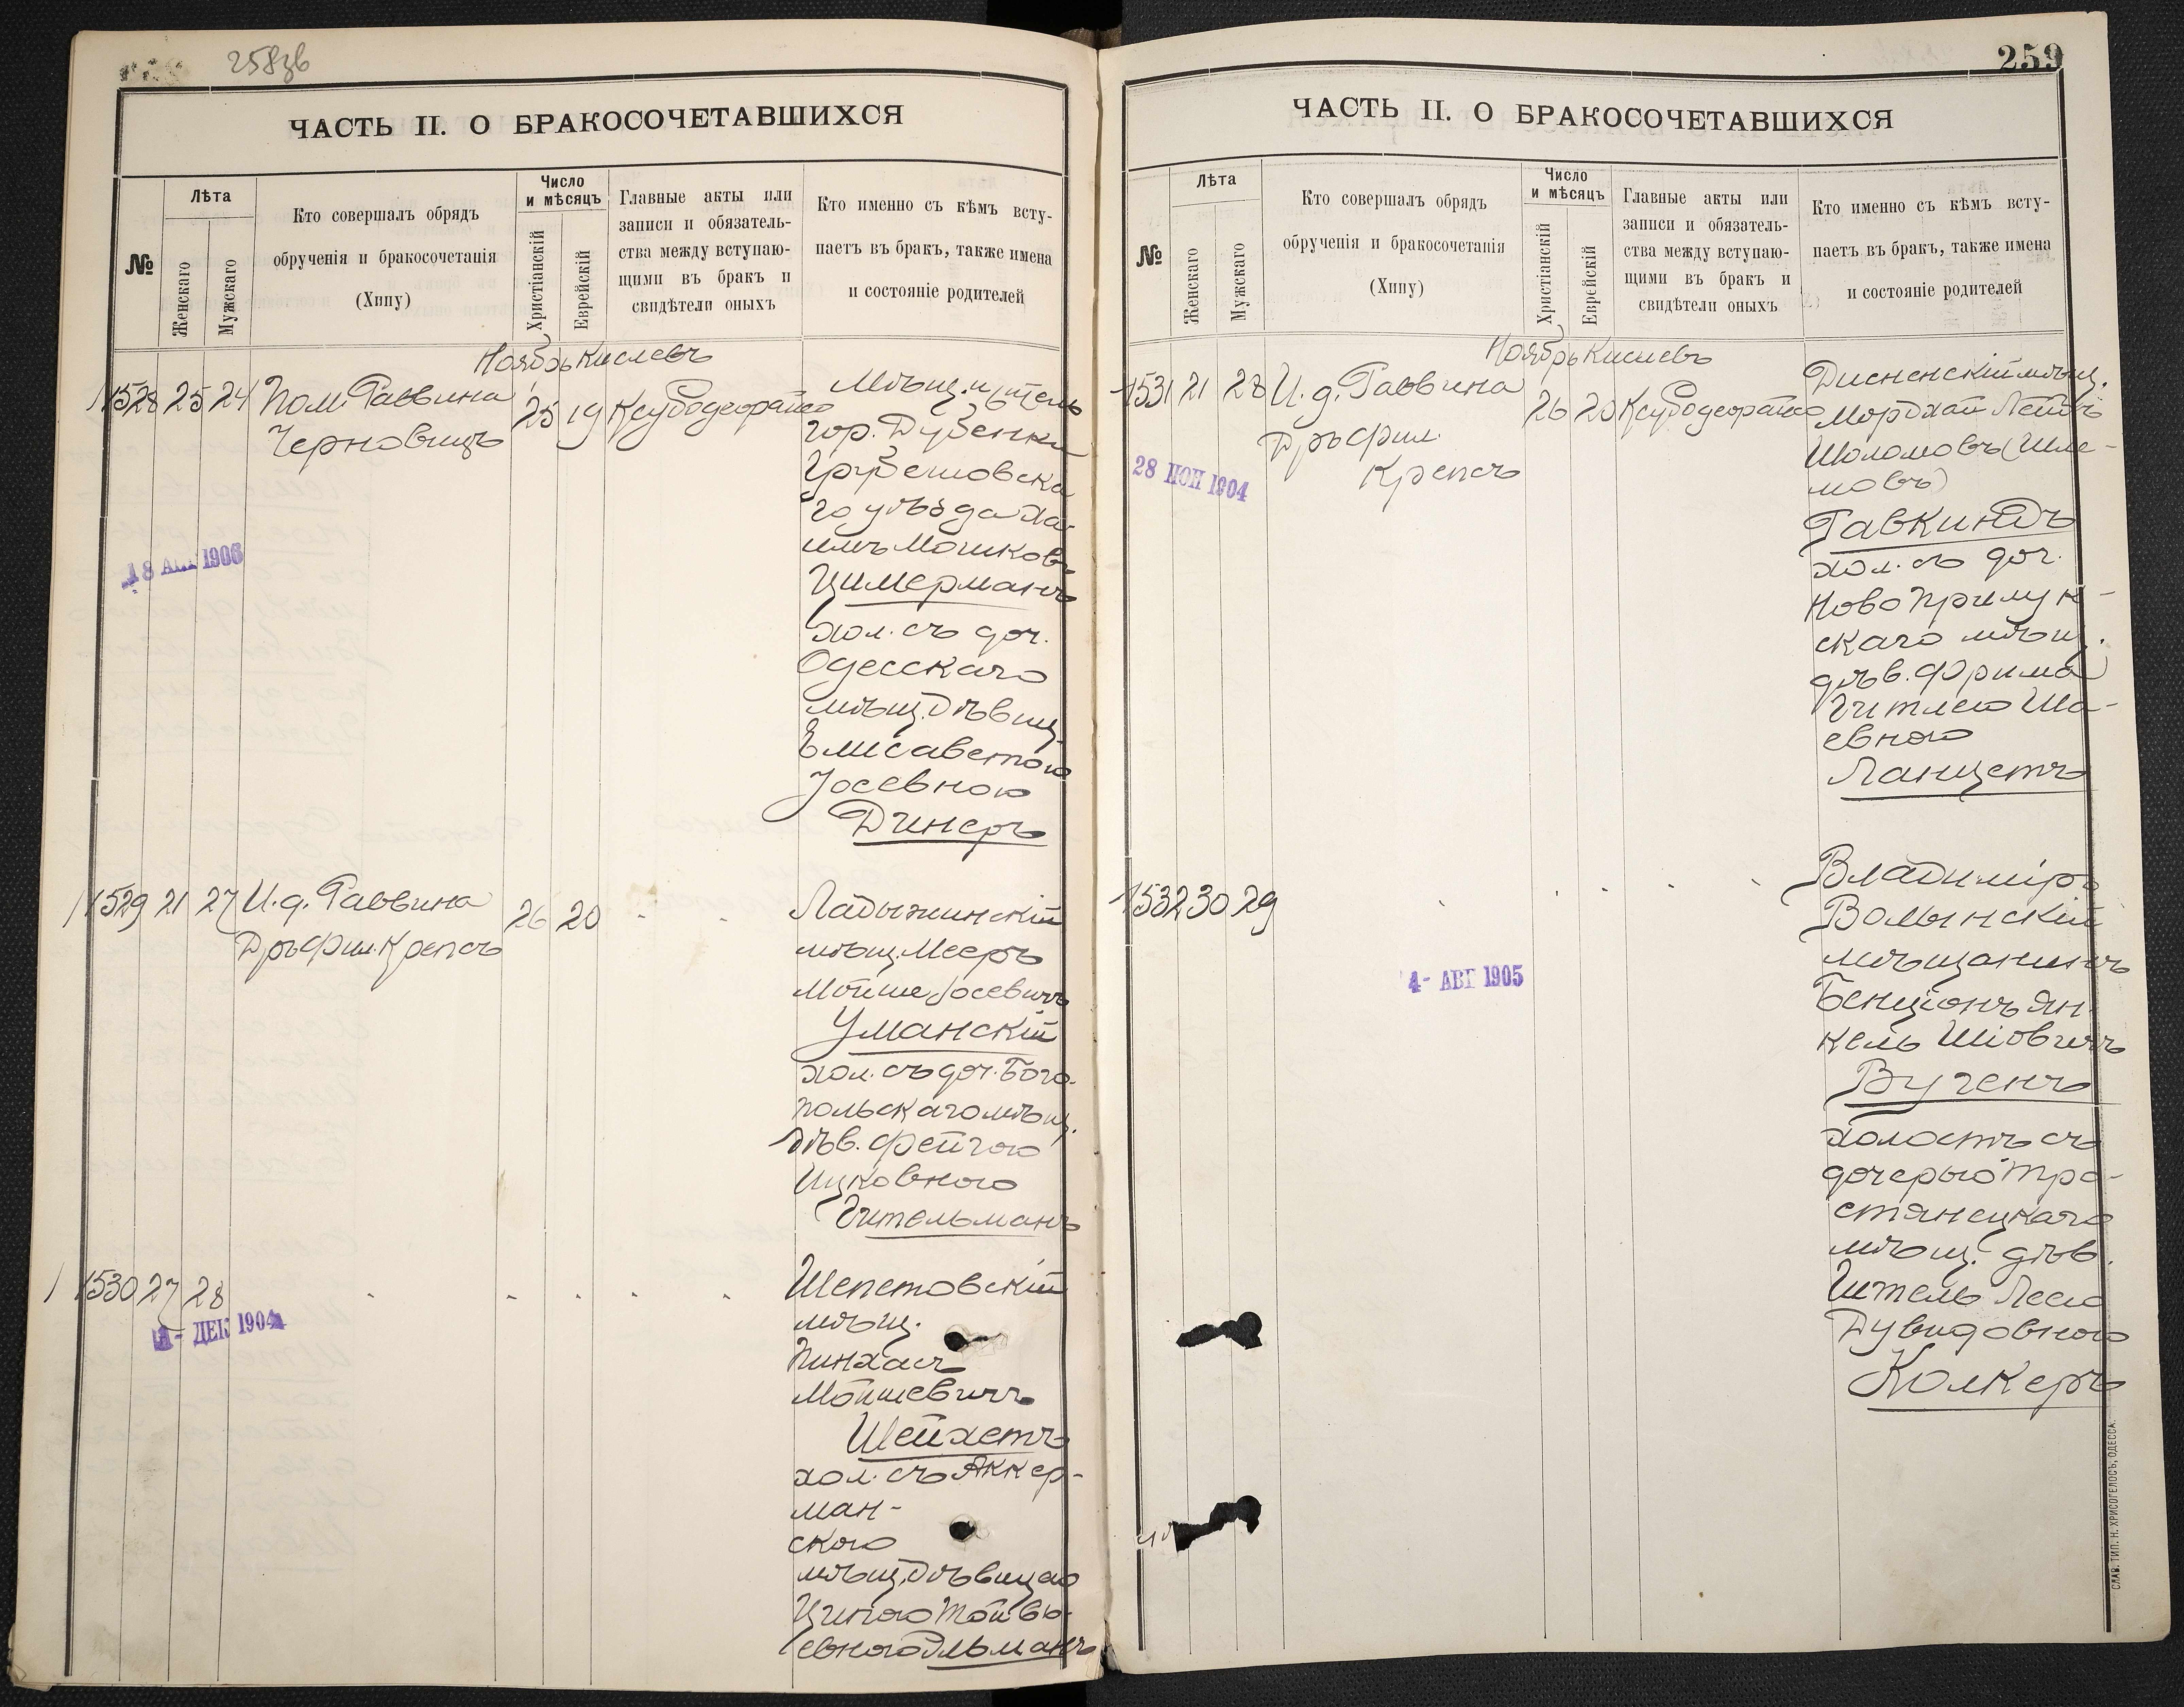 258зв
ЧАСТЬ II. О БРАКОСОЧЕТАВШИХСЯ
№
Лѣта
Женскаго
Мужскаго
Кто совершалъ обрядъ
обрученія и бракосочетанія
(Хипу)
Число
и мѣсяцъ
Христіанскій
Еврейскій
Главные акты или
записи и обязатель-
ства между вступаю-
щими въ бракъ и
свидѣтели оныхъ
Кто именно съ кѣмъ всту-
паетъ въ бракъ, также имена
и состояніе родителей
Ноябрь Кислевъ
1528 25 24 Пом. Раввина
Черновицъ
25 19
Мѣщ. и житель
гор. Дубенки
Грубешовска
го уѣзда Ха-
имъ Мошков.
Цимерманъ
хол. съ доч.
Одесскаго
мѣщ. дѣвиц.
Елисаветою
Іосевною
Динеръ
18 АПР 1906
1529 21 27 И. д. Раввина
Дръ фил. Крепсъ
26 20
Ладыжинскій
мѣщ. Мееръ
Мойше Іосевичъ
Уманскій
хол. съ доч. Бого-
польскаго мѣщ.
дѣв. Фейгою
Ицковною
Гительманъ
1530 27 28
Шепетовскій
мѣщ.
Пинхасъ
Мойшевичъ
Шейхетъ
хол. съ Аккер-
ман-
ского
мѣщ. дѣвицею
Ципою Тойвь-
евною Эльманъ
1- ДЕК 1904
259
ЧАСТЬ II. О БРАКОСОЧЕТАВШИХСЯ
№
Лѣта
Женскаго
Мужскаго
Кто совершалъ обрядъ
обрученія и бракосочетанія
(Хипу)
Число
и мѣсяцъ
Христіанскій
Еврейскій
Главные акты или
записи и обязатель-
ства между вступаю-
щими въ бракъ и
свидѣтели оныхъ
Кто именно съ кѣмъ всту-
паетъ въ бракъ, также имена
и состояніе родителей
Ноябрь Кислевъ
1531 21 28 И. д. Раввина
Дръ фил.
Крепсъ
26 20
28 НОЯ 1904
Дисненскій мѣщ.
Мордхай Лейбъ
Шоломовъ (Шле-
мовъ)
Равкиндъ
хол. съ доч.
Новоприлук-
скаго мѣщ.
дѣв. Фрима
Гитлею Ша-
евною
Ланцетъ
1532 30 29
4- АВГ 1905
Владиміръ
Волынскій
мѣщанинъ
Бенціонъ Ян-
кель Шіовичъ
Вугенъ
холостъ съ
дочерью Тро-
стянецкаго
мѣщ. дѣв.
Гитель Лею
Дувидовною
Колкеръ
СЛАВ. ТИП. Н. ХРИСОГЕЛОСЪ, ОДЕССА.